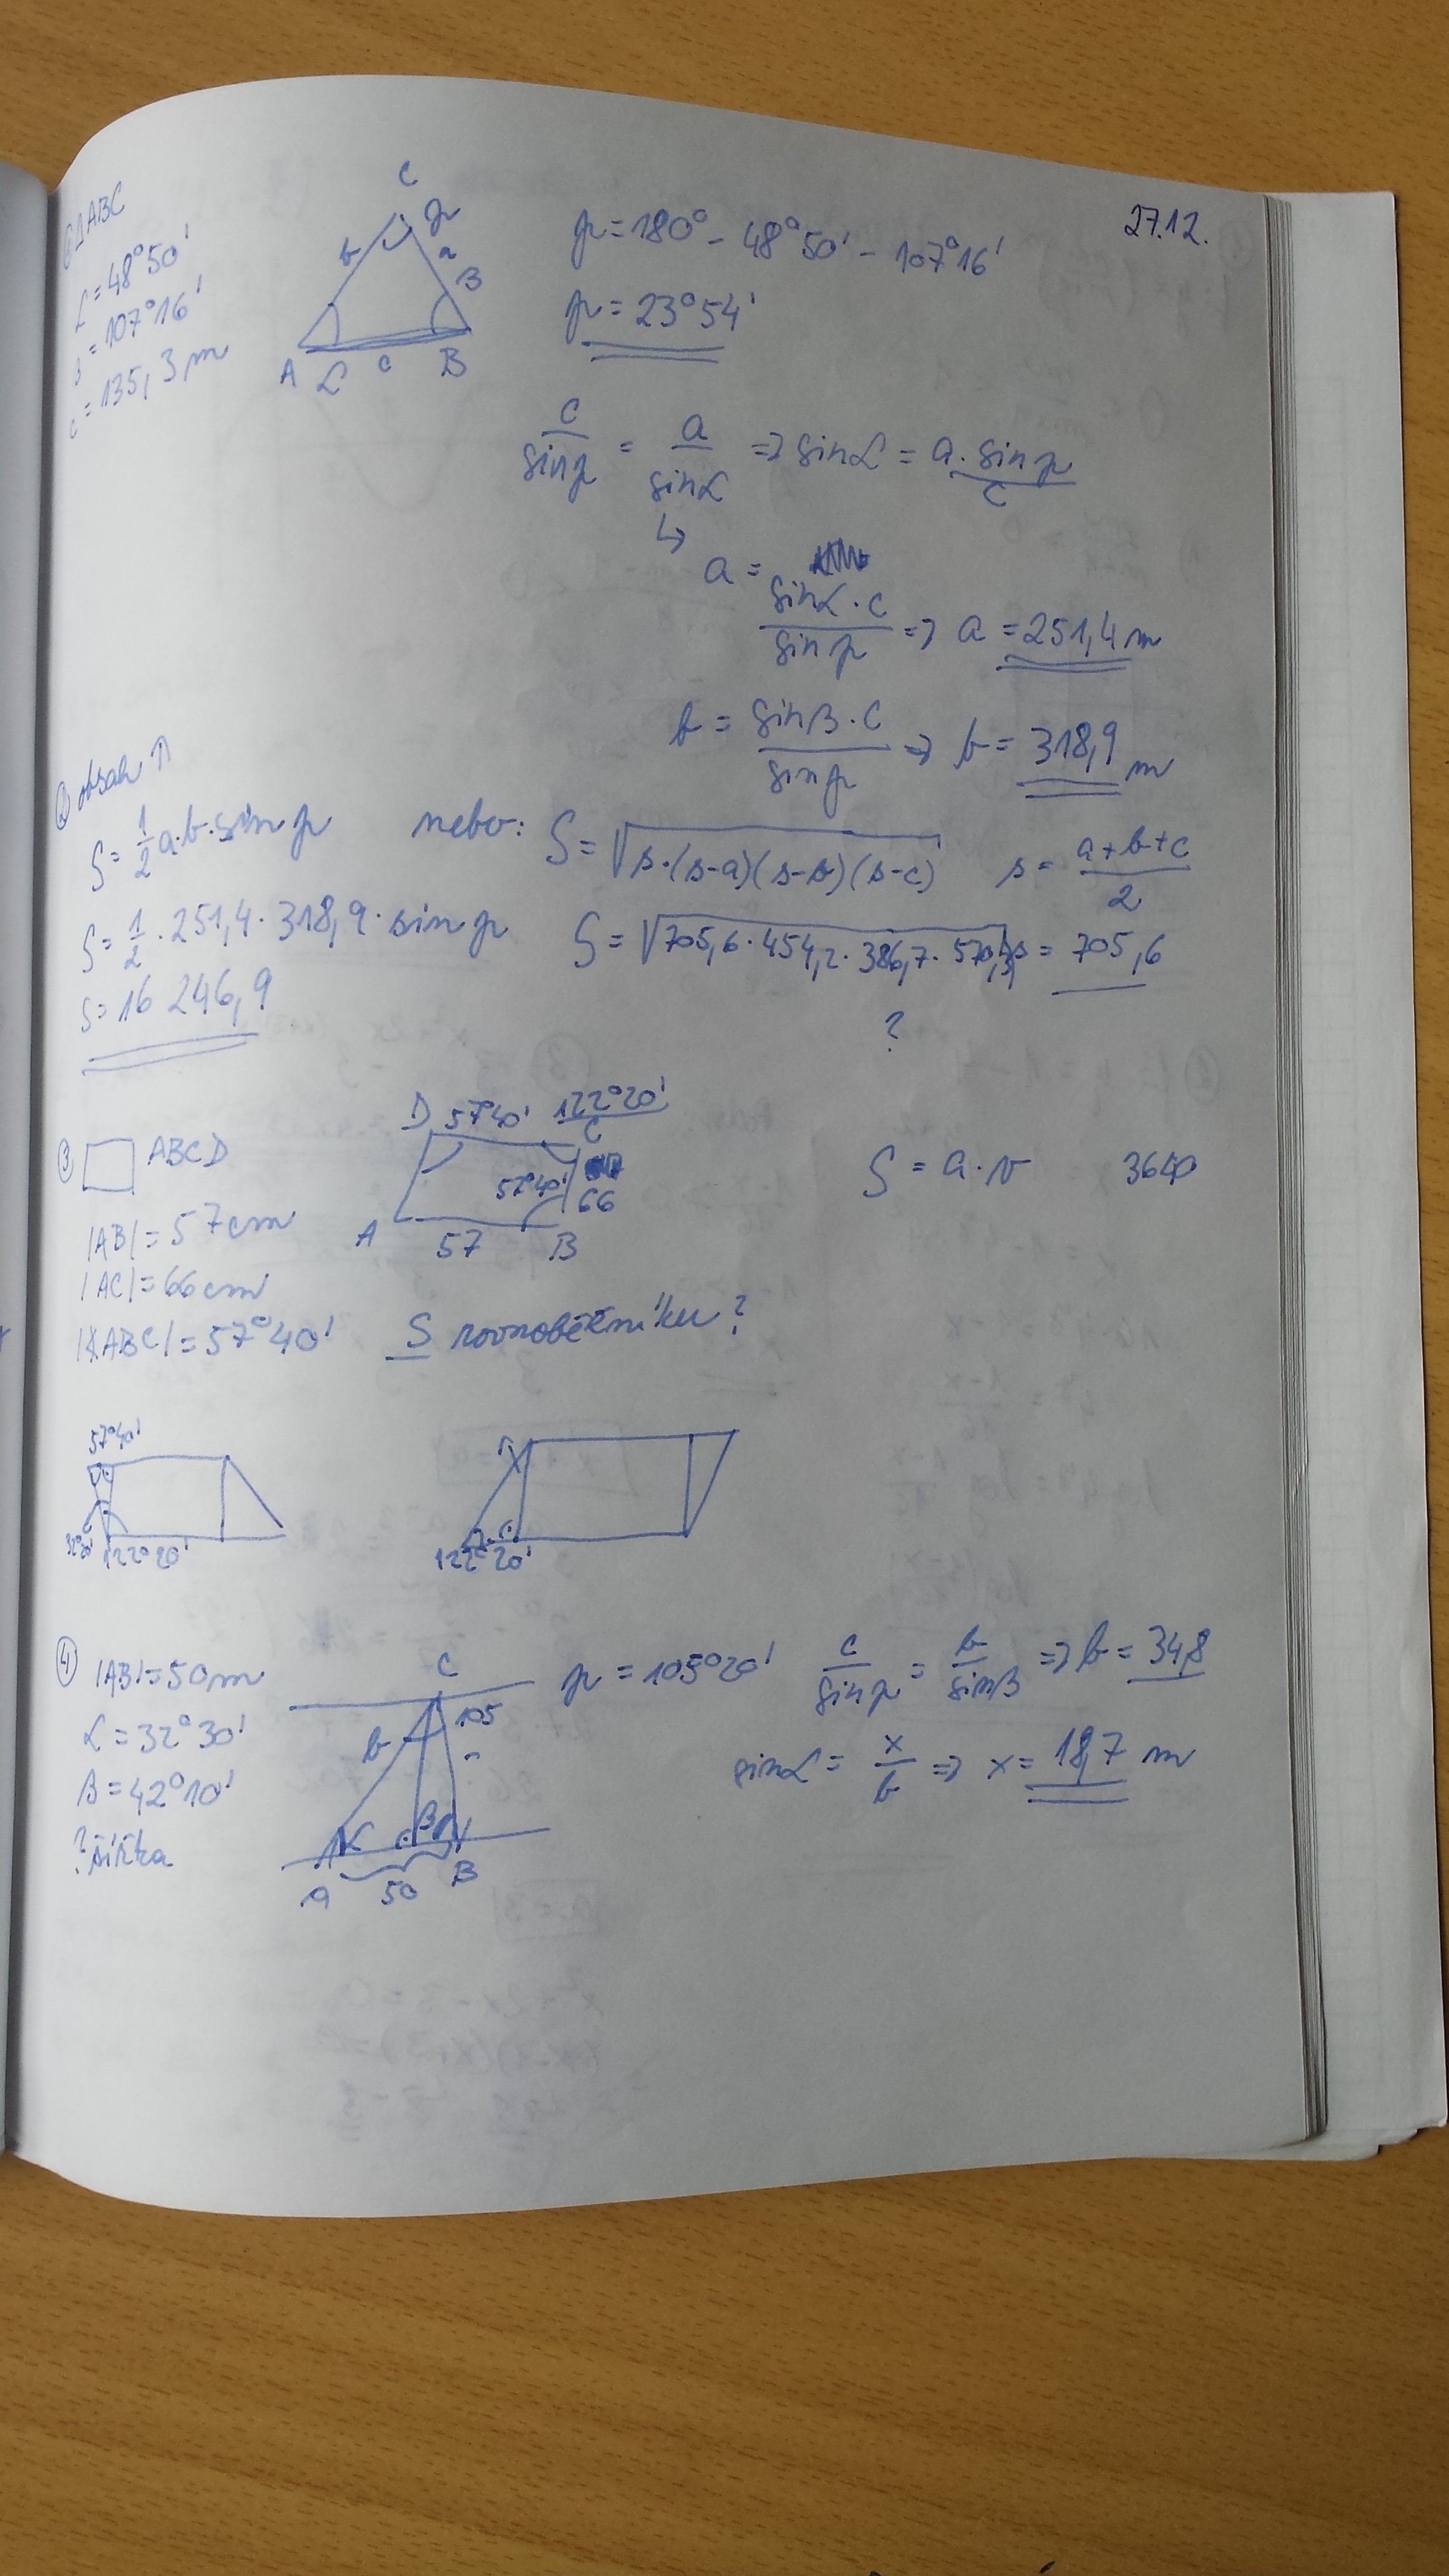 27.12.
① △ABC
α = 48°50'
β = 107°16'
c = 135,3 m
C
γ
b
a
β
A
α
c
B
γ = 180° - 48°50' - 107°16'
γ = 23°54'
c/sin γ = a/sin α => sin α = a · sin γ / c
↳ a = sin α · c / sin γ => a = 251,4 m
b = sin β · c / sin γ => b = 318,9 m
② obsah △
S = 1/2 a·b·sin γ nebo: S = √s·(s-a)(s-b)(s-c) s = a+b+c / 2
S = 1/2 · 251,4 · 318,9 · sin γ S = √705,6 · 454,2 · 386,7 · 570,3 s = 705,6
S = 16 246,9
?
③ □ ABCD
D 57°40' 122°20'
C
57°40'
66
A 57 B
S = a · v 3640
|AB| = 57cm
|AC| = 66cm
|∢ABC| = 57°40' S rovnoběžníku?
57°40'
32°20'
122°20'
122°20'
④ |AB| = 50m
α = 32°30'
β = 42°10'
? šířka
C
105
b
a
α
β
A
50
B
γ = 105°20' c/sin γ = b/sin β => b = 34,8
sin α = x/b => x = 18,7 m